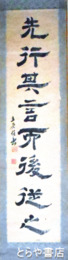 先行其言而後従之
とらや書房